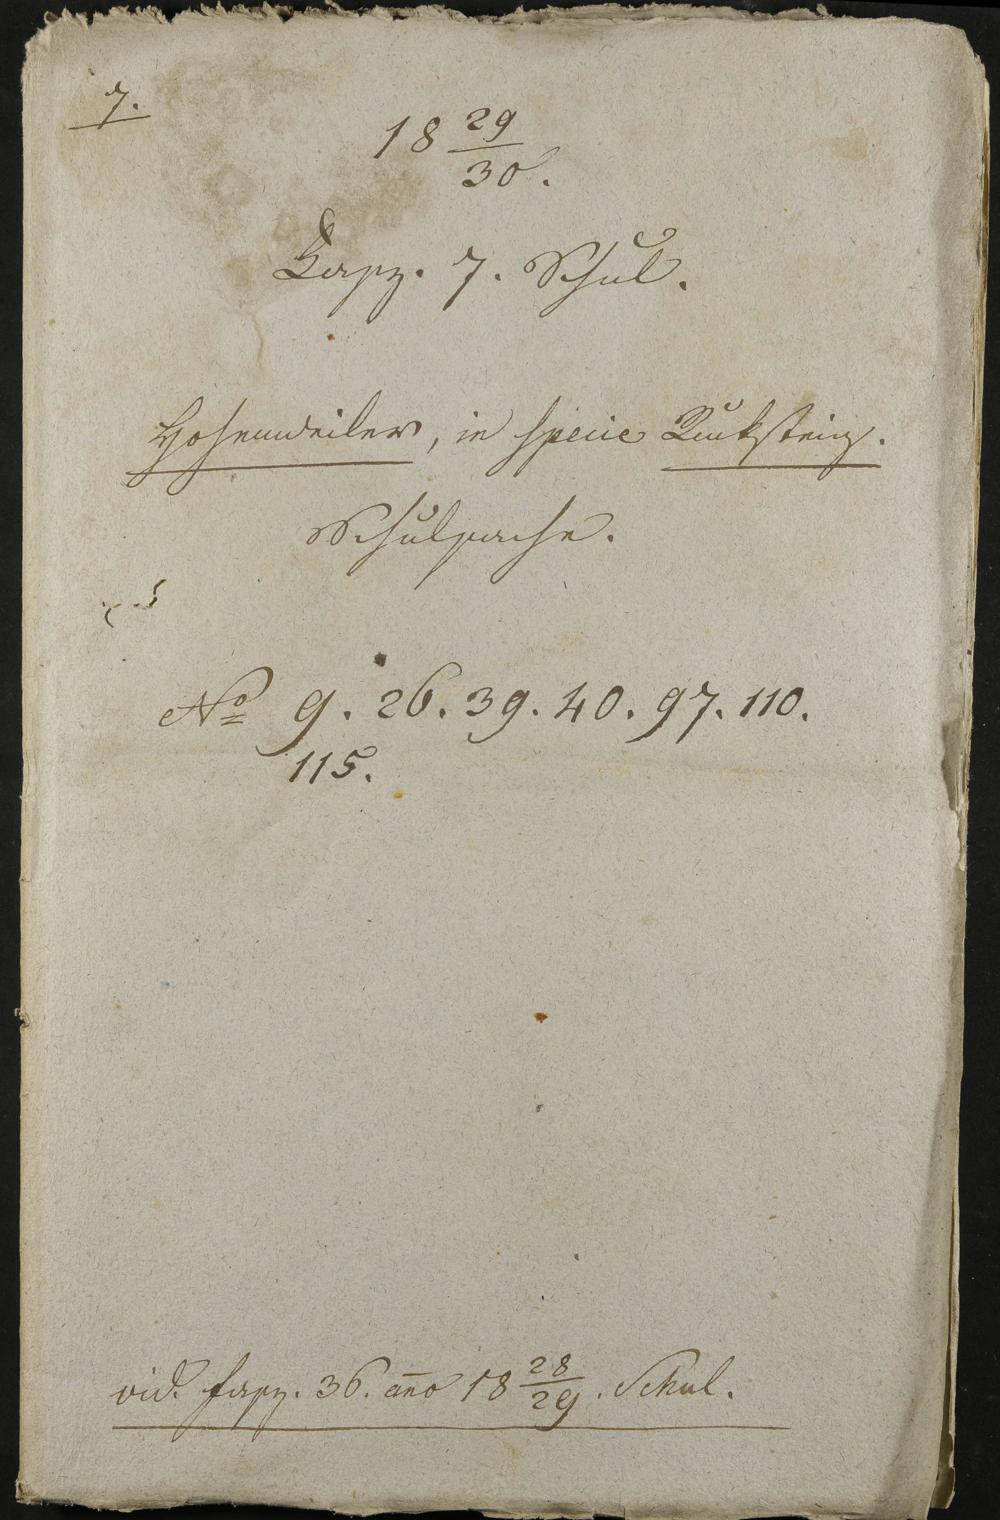 7.
18 29/30.
Fasz. 7. Schul.
Hohenweiler, in specie Ruksteig.
Schulsache.
No 9. 26. 39. 40. 97. 110.
115.
vid. fasz. 36. año 18 28/29. Schul.